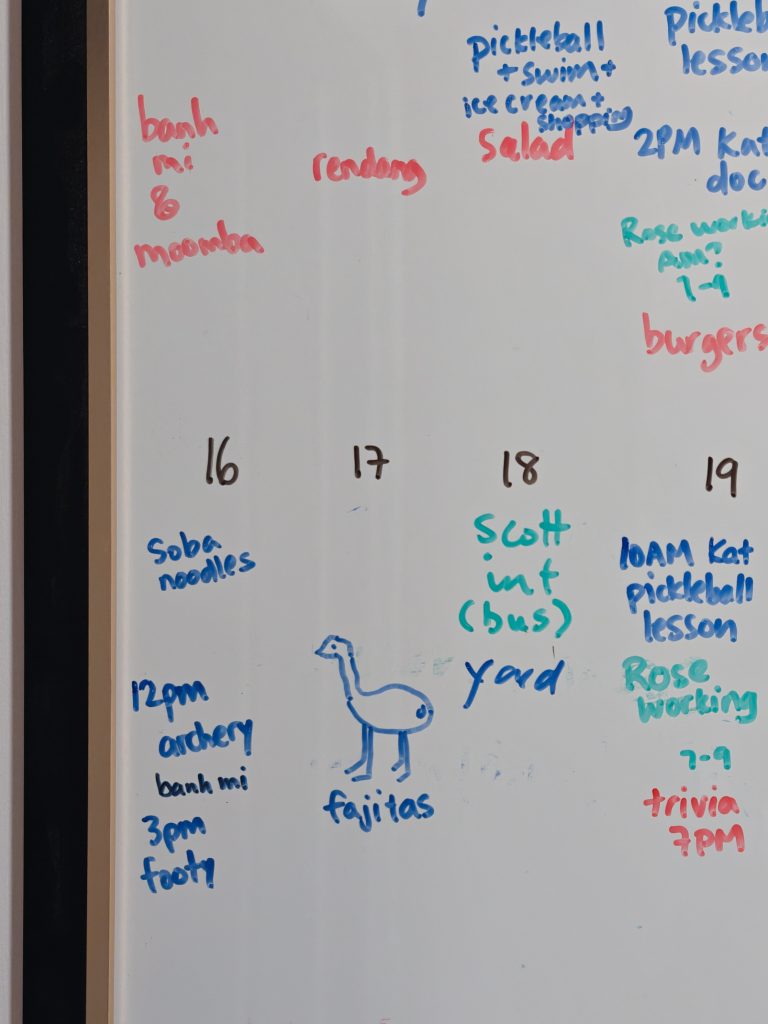 banh
mi
&
moomba
rendang
pickleball
+ swim +
ice cream +
shopping
salad
lesson
2PM Kat
doc
Rose
AM?
7-9
burgers
16
soba
noodles
12pm
archery
banh mi
3pm
footy
17
fajitas
18
Scott
int
(bus)
yard
19
10AM Kat
pickleball
lesson
Rose
working
7-9
trivia
7PM